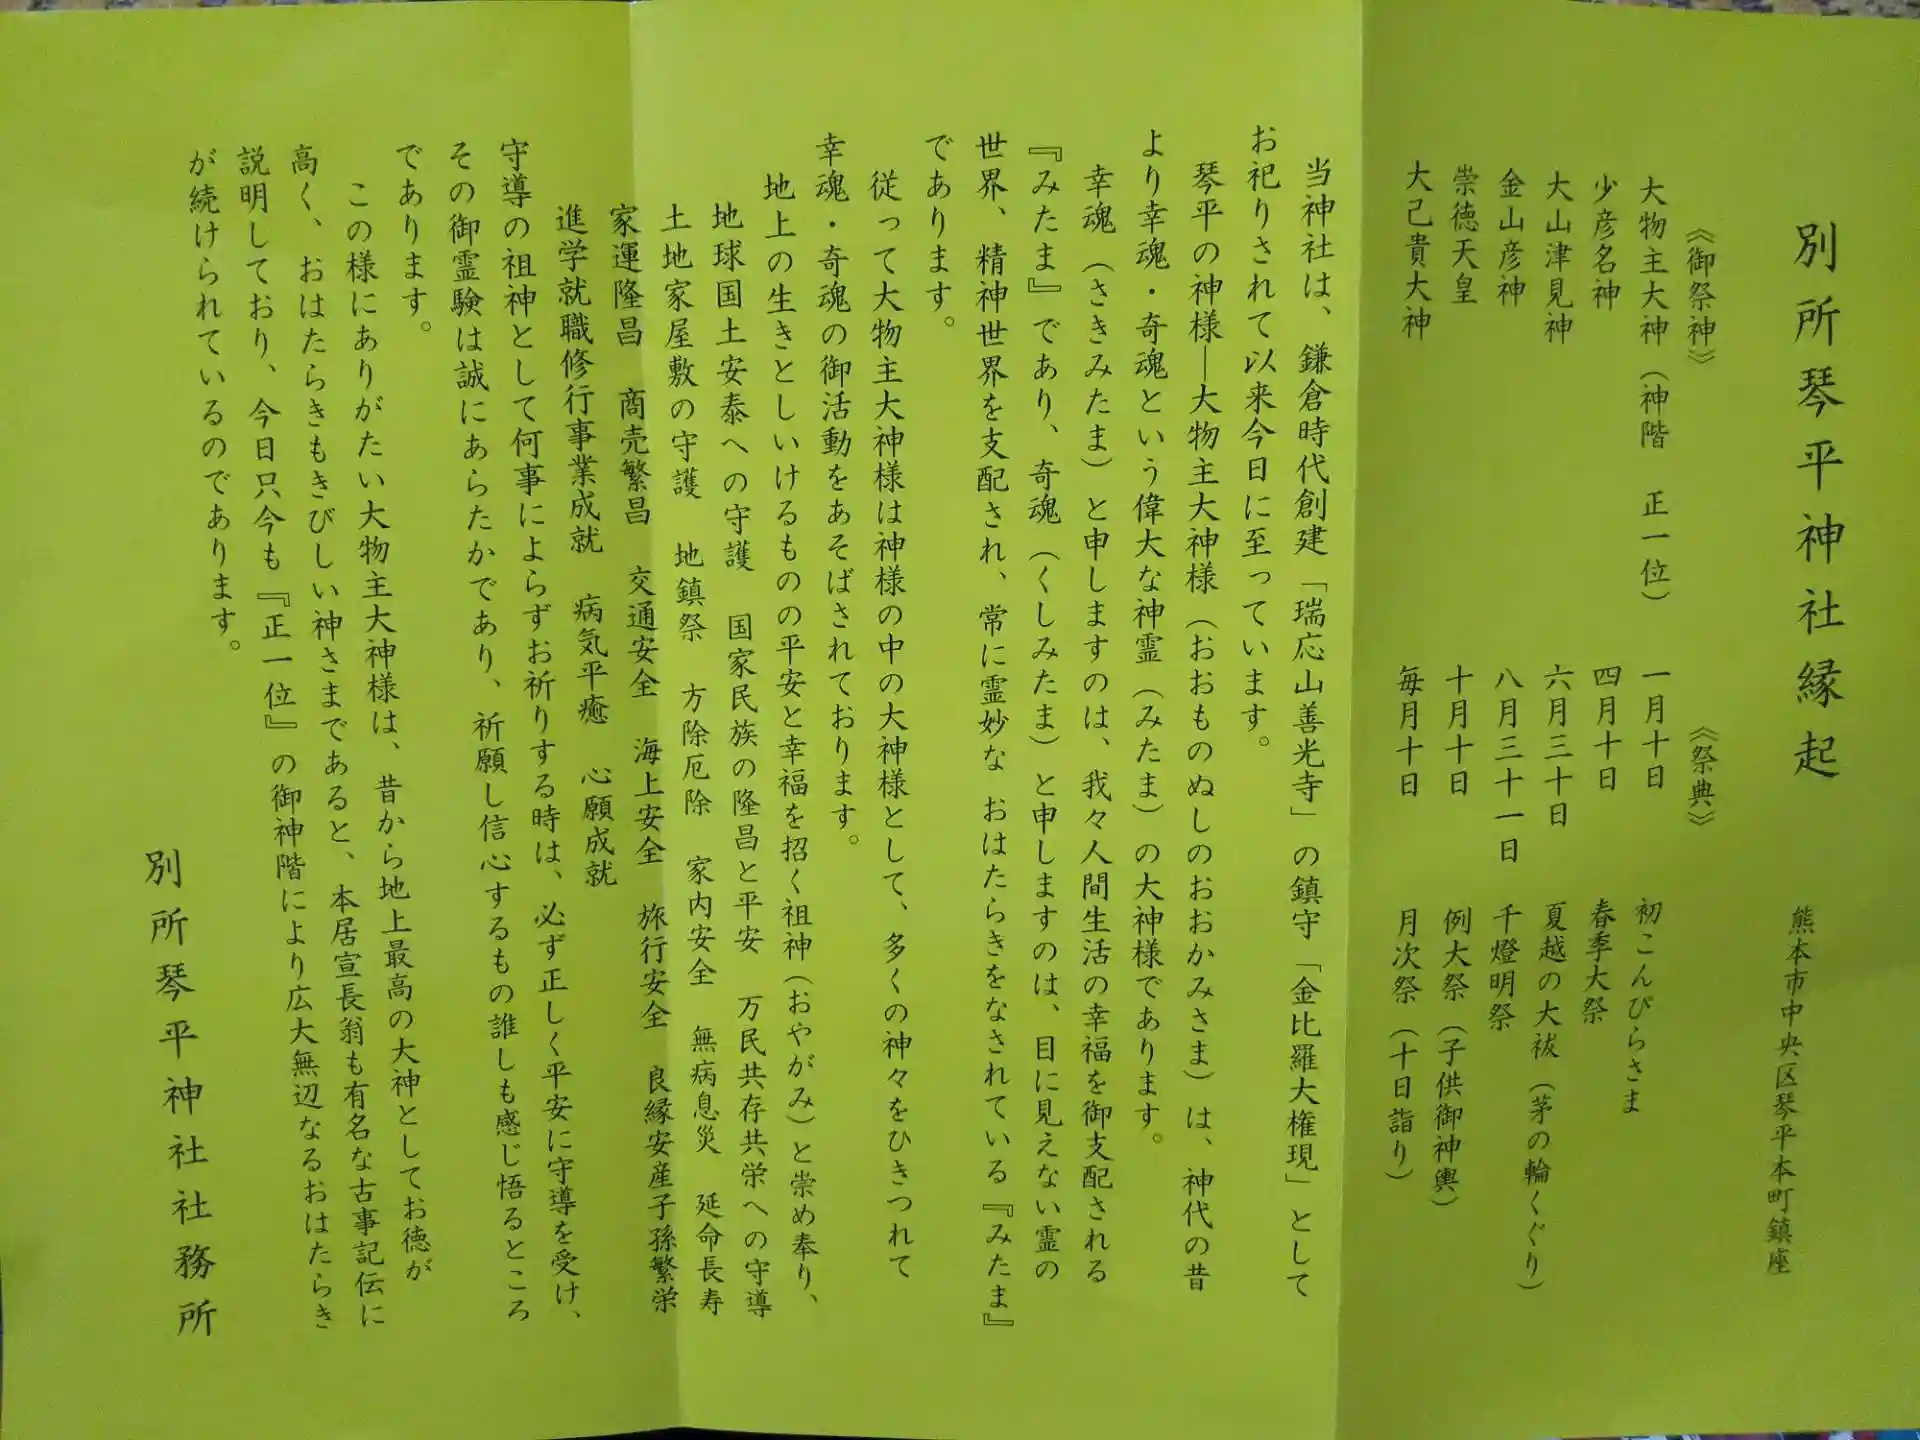 別所琴平神社縁起
熊本市中央区琴平本町鎮座
《御祭神》
《祭典》
大物主大神（神階　正一位）
一月十日　初こんぴらさま
少彦名神
四月十日　春季大祭
大山津見神
六月三十日　夏越の大祓（茅の輪くぐり）
金山彦神
八月三十一日　千燈明祭
崇徳天皇
十月十日　例大祭（子供御神輿）
大己貴大神
毎月十日　月次祭（十日詣り）
当神社は、鎌倉時代創建「瑞応山善光寺」の鎮守「金比羅大権現」として
お祀りされて以来今日に至っています。
琴平の神様―大物主大神様（おおものぬしのおおかみさま）は、神代の昔
より幸魂・奇魂という偉大な神霊（みたま）の大神様であります。
幸魂（さきみたま）と申しますのは、我々人間生活の幸福を御支配される
『みたま』であり、奇魂（くしみたま）と申しますのは、目に見えない霊の
世界、精神世界を支配され、常に霊妙な おはたらきをなされている『みたま』
であります。
従って大物主大神様は神様の中の大神様として、多くの神々をひきつれて
幸魂・奇魂の御活動をあそばされております。
地上の生きとしいけるものの平安と幸福を招く祖神（おやがみ）と崇め奉り、
地球国土安泰への守護　国家民族の隆昌と平安　万民共存共栄への守導
土地家屋敷の守護　地鎮祭　方除厄除　家内安全　無病息災　延命長寿
家運隆昌　商売繁昌　交通安全　海上安全　旅行安全　良縁安産子孫繁栄
進学就職修行事業成就　病気平癒　心願成就
守導の祖神として何事によらずお祈りする時は、必ず正しく平安に守導を受け、
その御霊験は誠にあらたかであり、祈願し信心するもの誰しも感じ悟るところ
であります。
この様にありがたい大物主大神様は、昔から地上最高の大神としてお徳が
高く、おはたらきもきびしい神さまであると、本居宣長翁も有名な古事記伝に
説明しており、今日只今も『正一位』の御神階により広大無辺なるおはたらき
が続けられているのであります。
別所琴平神社社務所